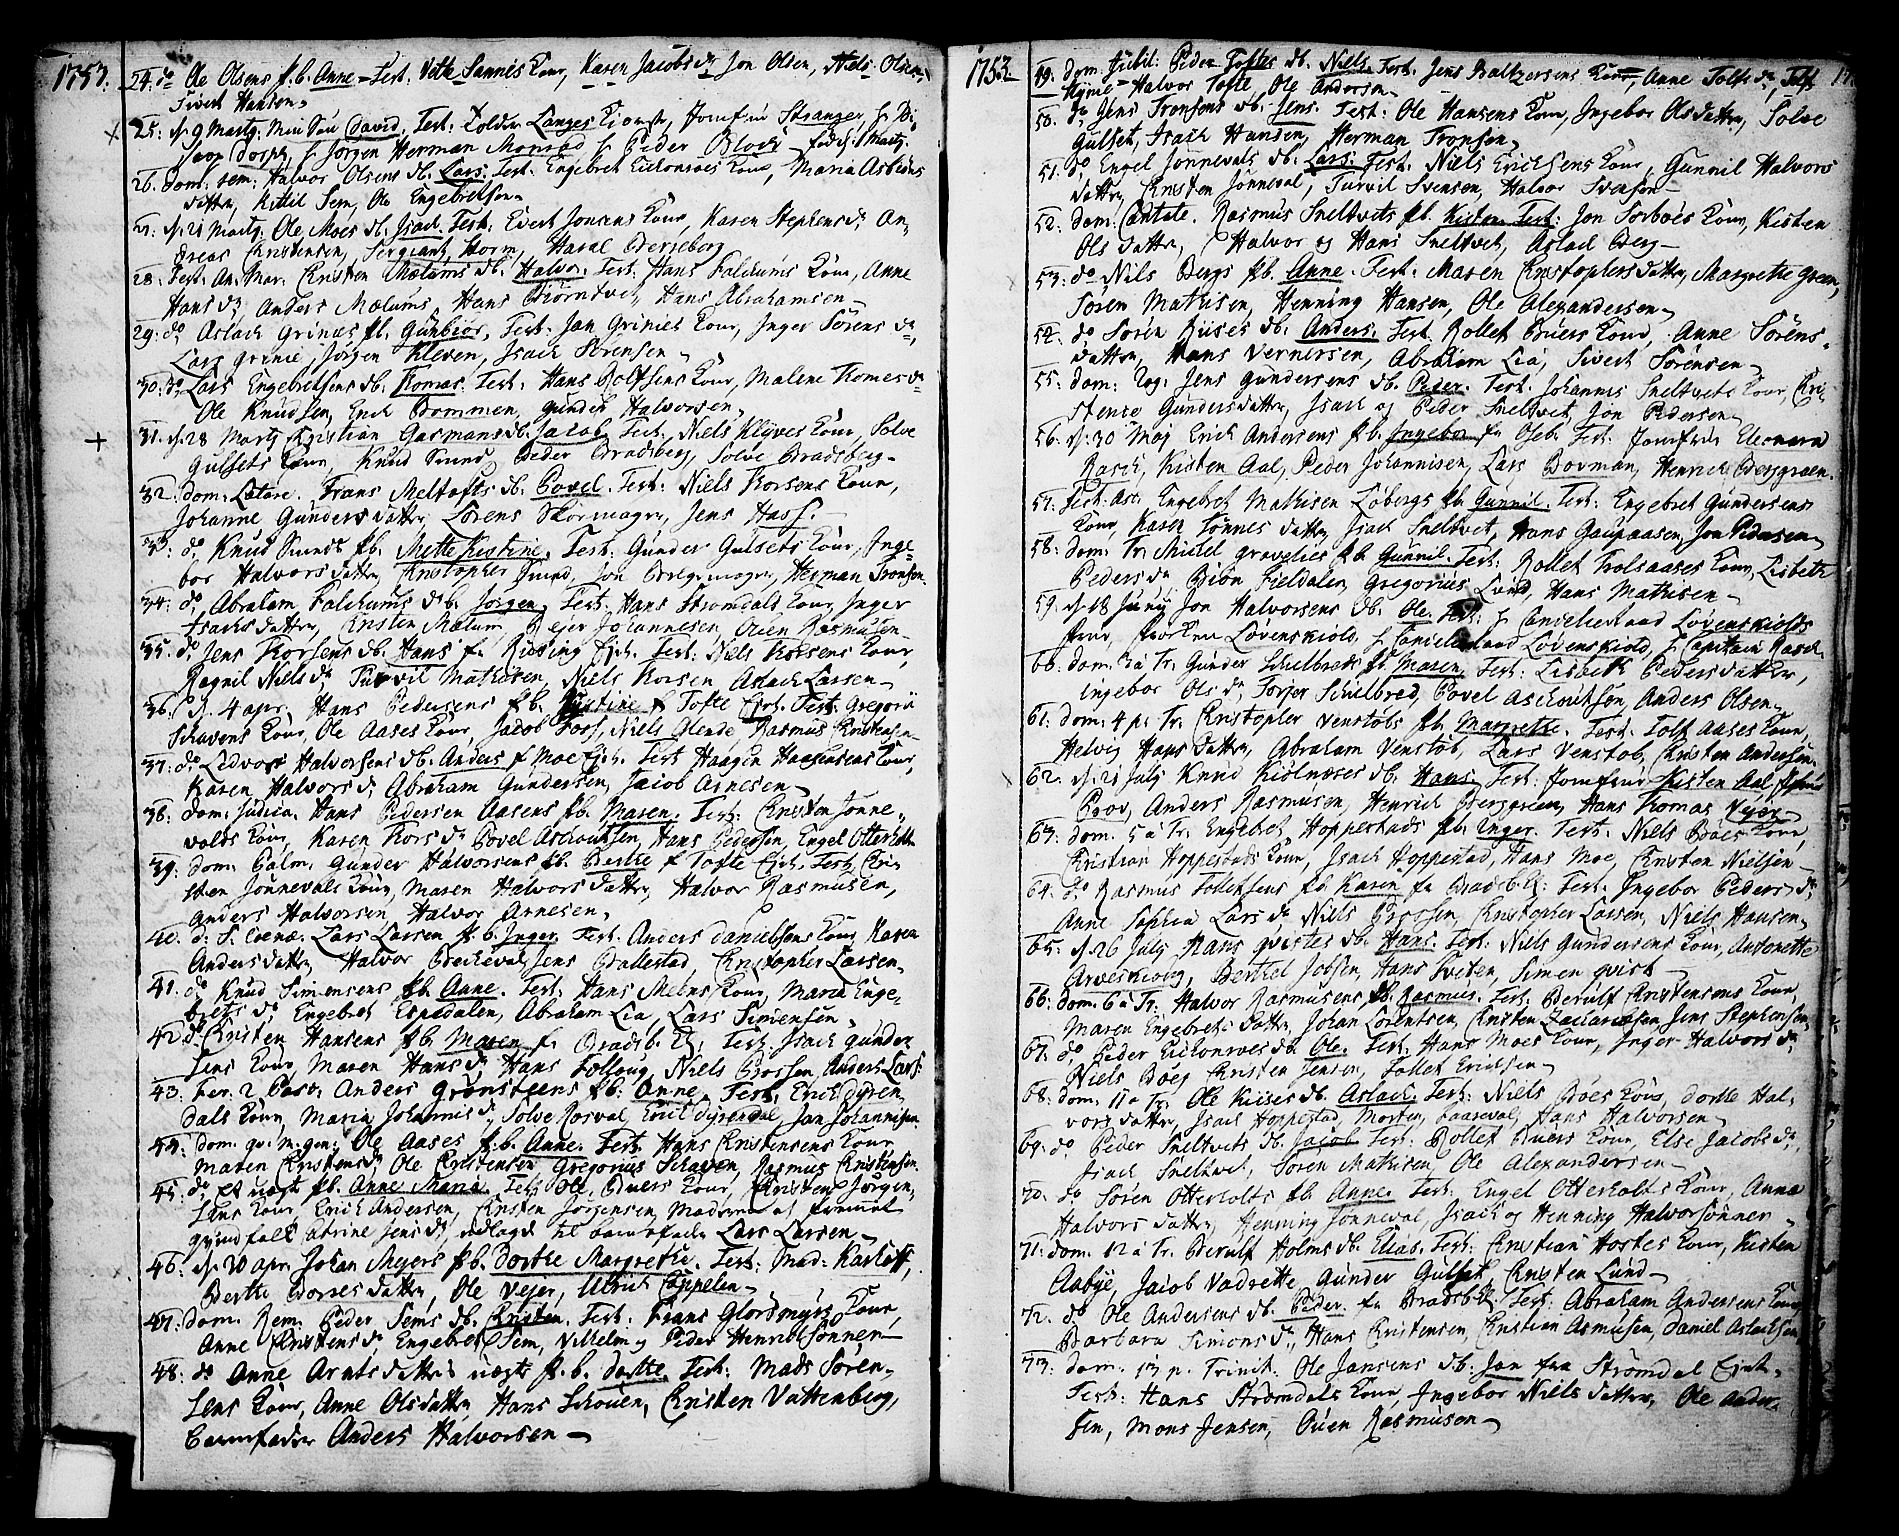 1753.
24. do Ole Olsens p.b. Anne. Test. Vetle Sannes Kone, Karen Jacobs dr Jon Olsen, Niels Olsen,
Sivert Hansen.
25. d. 9 Martj. Min Søn David. Test. Tolder Langes Kjæreste, Jomfrue Stranger, H. Bi-
skop Dorph, H. Jørgen Herman Monrad H. Peder Bloch. fød d. 1 Martj.
26. dom: sem: Halvor Olsens db. Lars. Test. Engebret Eichonroes Kone, Maria Asbiørns
datter, Kittil Sem, Ole Engebretsen.
27. d. 21 Martj. Ole Moes db. Isach. Test. Evert Jonsens Kone, Karen Stephens dr An-
dreas Christensen, Sergiant Horn, Haral Bergeborg
28. Fest. An. Mar. Christen Mælums db. Halvor. Test. Hans Falchums Kone, Anne
Hans dr, Anders Mælums, Hans Biørntvet, Hans Abrahamsen.
29. do Aslach Grinies pb. Gunbiør. Test. Jan Grinies Kone, Inger Sørens dr,
Lars Grinie, Jørgen Kleven, Isach Sørensen.
30. do Lars Engebretsens db. Thomas. Test. Hans Rolfsens Kone, Malene Thomes dr
Ole Knudsen, Erich Brommen, Gunder Halvorsen.
31. d. 28 Martj Christian Garmans db. Jacob. Test. Niels Klyves Kone, Solve
Gulsets Kone, Knud Smed, Peder Bradsberg, Solve Bradsberg.
32. dom: Lætare. Frans Meltofts db. Povel. Test. Niels Thorsens Kone,
Johanne Gunders datter, Lorens Skomager, Jens Hass.
33. do Knud Smeds pb. Mette Kistine. Test. Gunder Gulsets Kone, Inge-
bor Halvors datter, Christopher Smed, Jon Belgmager, Herman Tronsen.
34. do Abraham Falchums db. Jørgen. Test. Hans Strømdals Kone, Inger
Isachs datter, Christen Mælum, Bejer Johannesen, Ouen Rasmusen.
35. do Jens Thorsens db. Hans fr. Rising Ejet. Test. Niels Thorsens Kone,
Ragnil Niels dr Turvil Mathisen, Niels Thorsen Aslach Larsen.
36. d. 4 apr. Hans Pedersens pb. Kistine f Tofte Ejet. Test. Gregori
Schavens Kone, Ole Aases Kone, Jacob Fors, Niels Glende, Rasmus Christensen.
37. do Ledvor Halvorsens db. Anders f Moe Ejet. Test Haagen Haagensens Kone,
Karen Halvors dr Abraham Gundersen, Jacob Arnesen.
38. dom: Judica. Hans Pedersen Aasens pb. Maren. Test. Christen Jønne-
volds Kone, Karen Thors dr Povel Aschoutsen, Hans Pedersen, Engel Otterholt.
39. dom: Palm. Gunder Halvorsens pb. Berthe f Tofte Ejet. Test. Chri-
sten Jønnevals Kone, Maren Halvors datter, Halvor Rasmusen,
Anders Halvorsen, Halvor Arnesen.
40. d. S. Coenæ. Lars Larsen p.b. Inger. Test. Anders Danielsens Kone, Karen
Anders datter, Halvor Becheval, Jens Ballestad, Christopher Larsen.
41. do Knud Simensens pb. Anne. Test. Hans Mæens Kone, Maria Enge-
brets dr Engebret Espedalen, Abraham Lia, Lars Simensen.
42. do Christen Hansens pb. Maren fr. Bradsb. Ej. Test. Isach Gunder-
sens Kone, Maren Hans dr Hans Follaug, Niels Brossen, Anders Lars-
43. Fer. 2 Pasc. Anders Grønsteens pb. Anne. Test. Erich Dyren-
dals Kone, Maria Johannis dr, Solve Rosval, Erich Dyrendal, Jan Johannisen
44. dom. qv: m. gen: Ole Aases p.b. Anne. Test. Hans Christensens Kone
Maren Christens dr Ole Christensen Gregorius Schaven, Rasmus Christensen.
45. do et uægte pb. Anne Maria. Test. Ole Buers Kone, Christen Jørgen-
sens Kone, Erich Andersen, Christen Jørgensen, Moderen et fremmet
qvindfolk Catrine Jens dr, udlagde til barnefader Lars Larsen.
46. d. 20 apr. Johan Mejers pb. Dorthe Margrethe. Test. Mad: Harboe,
Berthe Borses datter, Ole Vejer, Ulrich Cappelen.
47. dom. Rem. Peder Sems db. Christen. Test. Frans Glarmesters Kone,
Anne Christens dr, Engebret Sem, Vilhelm og Peder Henrichsønner.
48. do Anne Arnts datters uægte p.b. Dorthe. Test. Mads Søren-
sens Kone, Anne Ols datter, Hans Schouen, Christen Vattenberg,
Barnefader Anders Halvorsen.
1753.
49. dom. Jubil. Peder Toftes db. Niels. Test. Jens Baltzersens Kone, Anne Tolfs dr, Tolf
Hyme Halvor Tofte, Ole Andersen.
50. do Jens Tronsens db. Jens. Test. Ole Hansens Kone, Ingebor Ols datter, Solve
Gulset, Isach Hansen, Herman Tronsen.
51. do Engel Jønnevals db. Lars. Test. Niels Erichsens Kone, Gunnil Halvors
datter, Christen Jønneval, Turvil Svensen, Halvor Svensen.
52. dom: Cantate. Rasmus Sneltvets pb. Kisten. Test. Jon Torboes Kone, Kisten
Ols datter, Halvor og Hans Sneltvet, Aslach Berg.
53. do Niels Bergs pb. Anne. Test. Maren Christophers datter, Margrethe Green,
Søren Mathisen, Henning Hansen, Ole Alexandersen.
54. do Søren Kises db. Anders. Test. Rollef Buers Kone, Anne Sørens-
datter, Hans Vernersen, Abraham Lia, Sivert Sørensen.
55. dom: Rog: Jens Gundersens db. Peder. Test. Johannis Sneltvets Kone, Chri-
stence Gunders datter, Isach og Peder Sneltvet, Jon Pedersen.
56. d. 30 Maj Erich Andersens pb. Ingebor fr. Osebr. Test. Jomfrue Eleonora
Rasch, Kisten Aal, Peder Johannisen, Lars Bovman, Henrich Berggreen.
57. Fest. Asc. Engebret Mathisen Løbergs pb. Gunnil. Test. Engebret Gundersens
Kone, Karen Tønnes datter, Isach Sneltvet, Hans Gaupaasen, Jon Pedersen.
58. dom: Tr: Michel Gravelies pb. Gunnil. Test. Rollef Trolsaases Kone, Lisbeth
Peders dr Biøn Fieldalen, Gregorius Lund, Hans Mathisen.
59. d. 18 Junij Jon Halvorsens db. Ole. Test. H Cancelieraad Løvenskiolds
Frue, Frøken Løvenskiold, H Cancelieraad Løvenskiold, H Capitain Rasch.
60. dom. 2 a Tr. Gunder Schilbreds pb. Maren. Test. Lisbeth Peders datter,
Ingebor Ols dr Torjer Schilbred, Povel Aschoutsen, Anders Olsen.
61. dom: 4 p. Tr. Christopher Venstøbs pb. Margrethe. Test. Tolf Aases Kone,
Helvig Hans datter, Abraham Venstøb, Lars Venstøb, Christen Andersen.
62. d. 21 July Knud Kiølneses db. Hans. Test. Jomfrue Kisten Aal,
Prov, Anders Rasmusen, Henrich Berggreen, Hans Thomas Vejer.
63. dom. 5 a Tr. Engebret Hoppestads pb. Inger. Test. Niels Boes Kone,
Christian Hoppestads Kone, Isach Hoppestad, Hans Moe, Christen Nielsen.
64. do Rasmus Tollefsens pb. Karen fr. Bradsb. Ej. Test. Ingebor Peders dr,
Anne Sophia Lars dr, Niels Brossen, Christopher Larsen, Niels Hansen.
65. d. 26 July Hans Qvistes db. Hans. Test. Niels Gundersens Kone, Antonette
Arveskoug, Berthel Jobsen, Hans Sveten, Simen Qvist.
66. dom. 6 a Tr. Halvor Rasmusens db. Rasmus. Test. Berulf Christensens Kone,
Maren Engebrets datter, Johan Lorentsen, Christen Zachariasen, Jens Stephensen,
67. do Peder Eichonroes db. Ole. Test. Hans Moes Kone, Inger Halvors dr
Niels Boeg Christen Jensen, Tollef Erichsen.
68. dom. 11 a Tr. Ole Kises db. Aslach. Test. Niels Boes Kone, Dorthe Hal-
vors datter, Isach Hoppestad, Morten Faareval, Hans Halvorsen.
69. do Peder Sneltvets db. Jacob. Test. Rollef Buers Kone, Else Jacobs dr,
Isach Sneltvet, Søren Mathisen, Ole Alexandersen.
70. do Søren Otterholts pb. Anne. Test. Engel Otterholts Kone, Anna
Halvors datter, Henning Jønneval, Isach og Henning Halvorsønner.
71. dom. 12 a Tr. Berulf Holms db. Elias. Test. Christian Hortes Kone, Kisten
Aabye, Jacob Vadrette, Gunder Gulset, Christen Lund.
72. do Ole Andersens db. Peder fr. Bradsb. Ej. Test. Abraham Andersens Kone,
Barbara Simons dr, Hans Christensen, Christian Asmusen, Daniel Aslachsen.
73. dom. 13 p. Trinit. Ole Jansens db. Jan fra Strømdal Ejet.
Test. Hans Strømdals Kone, Ingebor Niels datter, Ole Ander-
sen, Mons Jensen, Ouen Rasmusen.